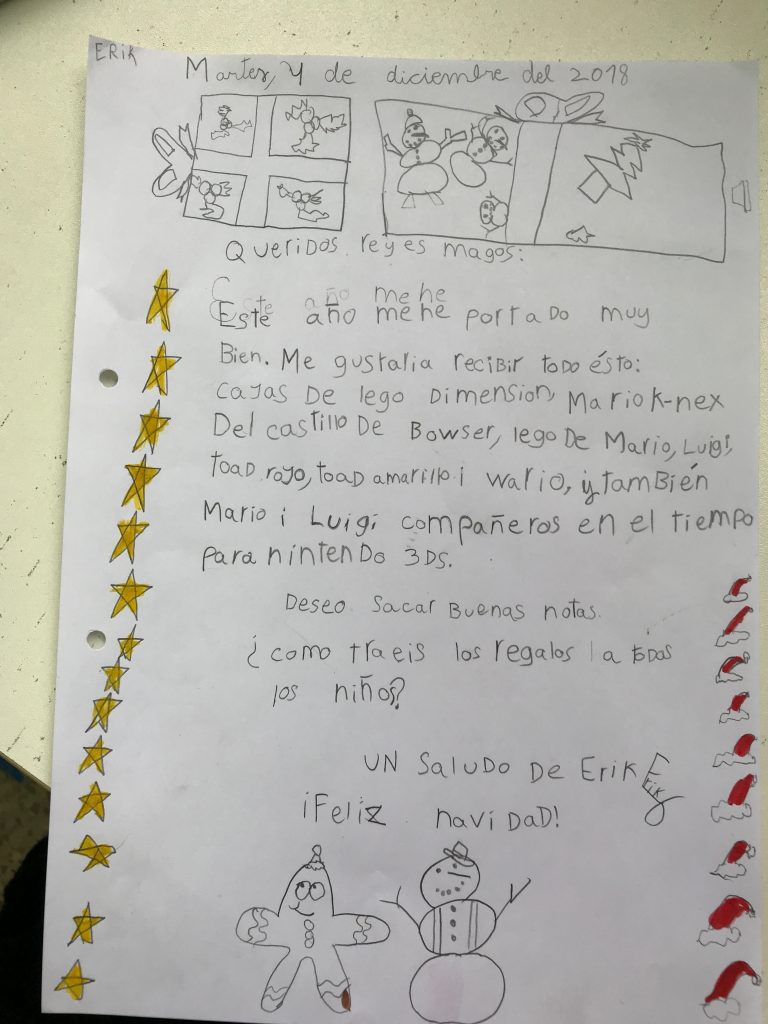 ERIK
Martes, 4 de diciembre del 2018
Queridos reyes magos:
Este año me he
Este año me he portado muy
Bien. Me gustalia recibir todo ésto:
cajas De lego Dimension, Mario K-nex
Del castillo De Bowser, lego De Mario, Luigi,
toad rojo, toad amarillo i wario, y también
Mario i Luigi compañeros en el tiempo
para nintendo 3DS.
Deseo sacar Buenas notas.
¿como traeis los regalos a todas
los niños?
UN Saludo De Erik Erik
¡Feliz naviDaD!